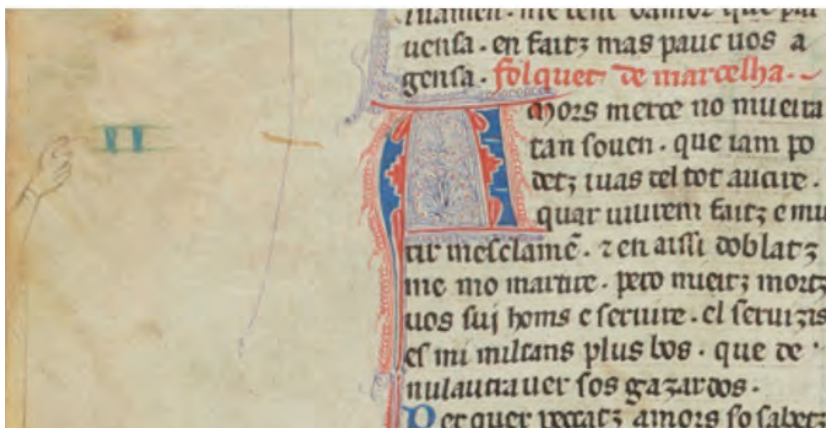 uensa · en faitz mas pauc uos a
gensa · folquet de marcelha ·
Amors merce no mueira
tan souen · que iam po
detz uias del tot aucire ·
quar uiurem faitz e mu
rir mesclamē · ⁊ en aissi doblatz
me mo martire · pero mieitz mortz
uos suj homs e seruire · el seruizis
es mi miltans plus bos · que de
nulautrauer sos gazardos ·
Per quer peccatz amors so sabetz